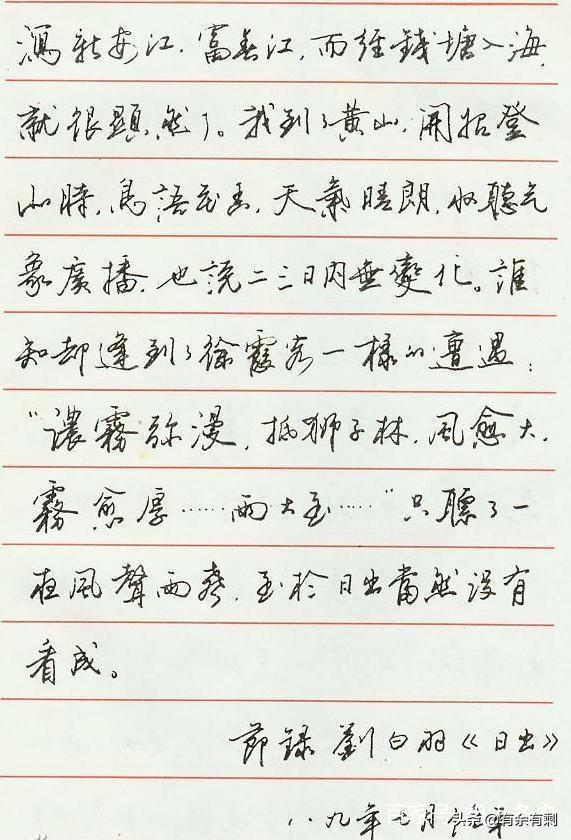 瀉新安江、富春江,而經錢塘入海,
就很顯然了。我到了黃山,開始登
山時,鳥語花香,天氣晴朗,收聽气
象廣播,也説二三日内無變化。誰
知却逢到了徐霞客一樣的遭遇:
“濃霧弥漫,抵狮子林,風愈大,
霧愈厚……雨大至……”只聽了一
夜風聲雨聲,至於日出當然没有
看成。
節録劉白羽《日出》
八九年七月
头条 @有余有剩